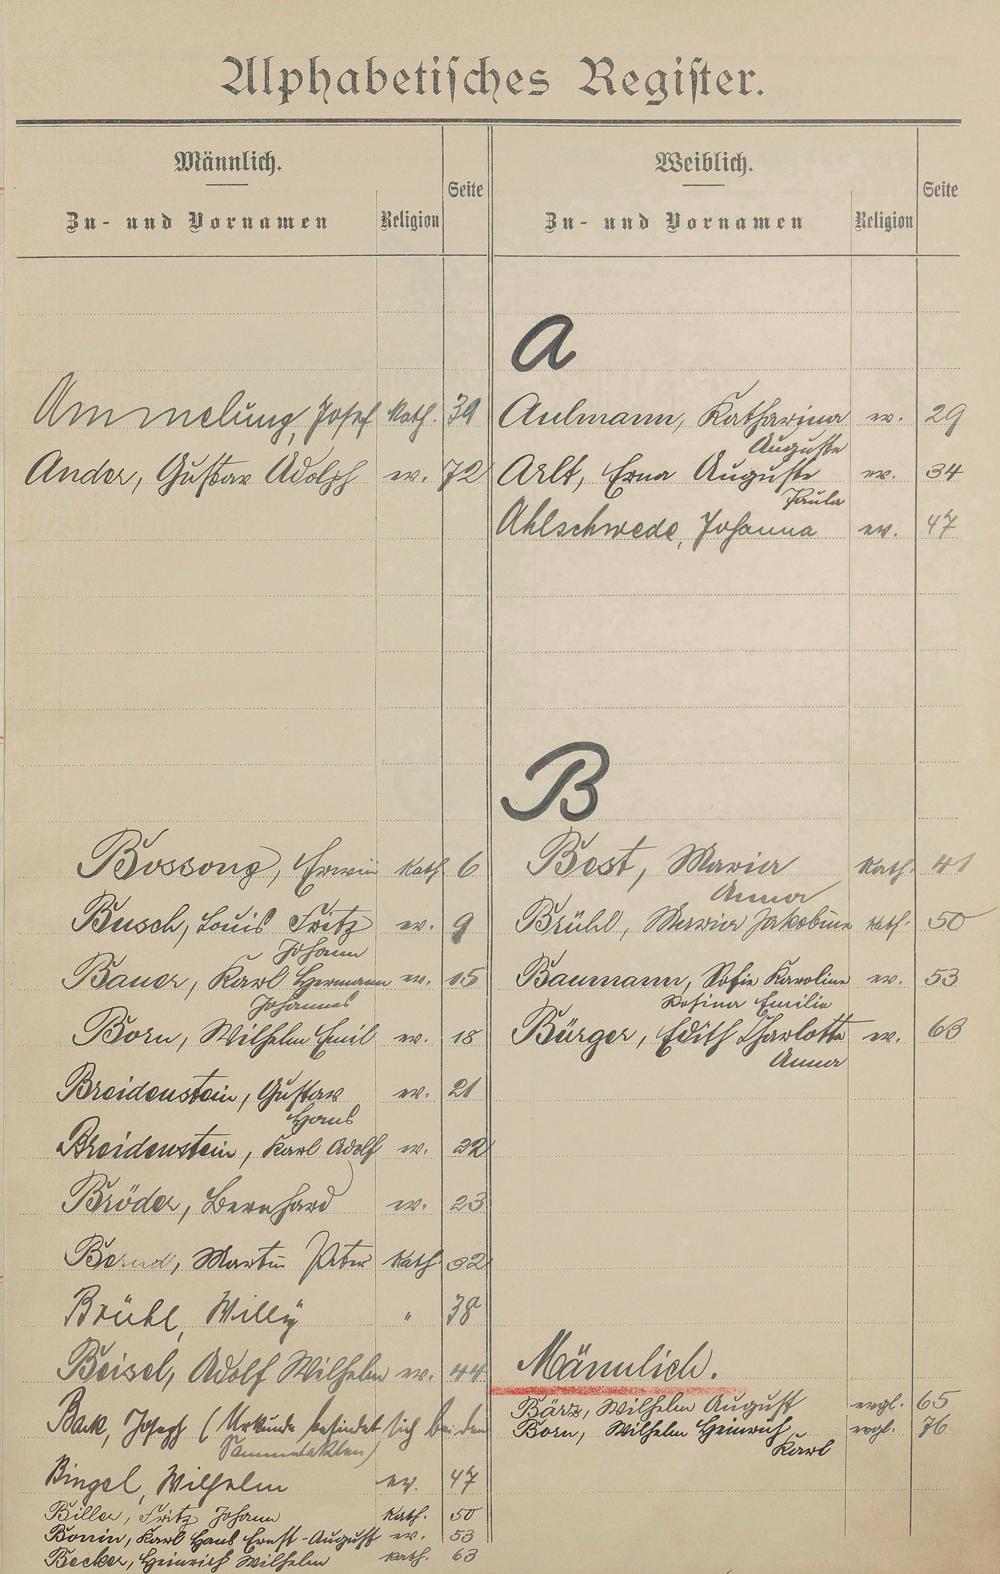 Alphabetisches Register.
Männlich.
Zu- und Vornamen
Religion
Seite
Weiblich.
Zu- und Vornamen
Religion
Seite
A
Ammelung, Josef kath. 39
Ander, Gustav Adolph ev. 72
Aulmann, Katharina ev. 29
Auguste
Arlt, Erna Auguste ev. 34
Paula
Ahlschwede, Johanna ev. 47
B
Bossong, Erwin kath. 6
Busch, Louis Fritz ev. 9
Johann
Bauer, Karl Hermann ev. 15
Johannes
Born, Wilhelm Emil ev. 18
Breidenstein, Gustav ev. 21
Hans
Breidenstein, Karl Adolf ev. 22
Bröder, Bernhard ev. 23
Bernd, Martin Peter kath 32
Brühl, Willy " 38
Beisel, Adolf Wilhelm ev. 44
Bak, Joseph (Urkunde befindet sich bei den
Sammelakten)
Bingel, Wilhelm ev. 47
Biller, Fritz Johann kath. 50
Bonin, Karl Hans Ernst-August ev. 53
Becker, Heinrich Wilhelm kath. 63
Best, Maria kath. 41
Anna
Brühl, Maria Jakobine kath. 50
Baumann, Sofie Karoline ev. 53
Rosina Emilie
Bürger, Edith Charlotte ev. 63
Anna
Männlich.
Bärz, Wilhelm August evgl. 65
Born, Wilhelm Heinrich evgl. 76
Karl